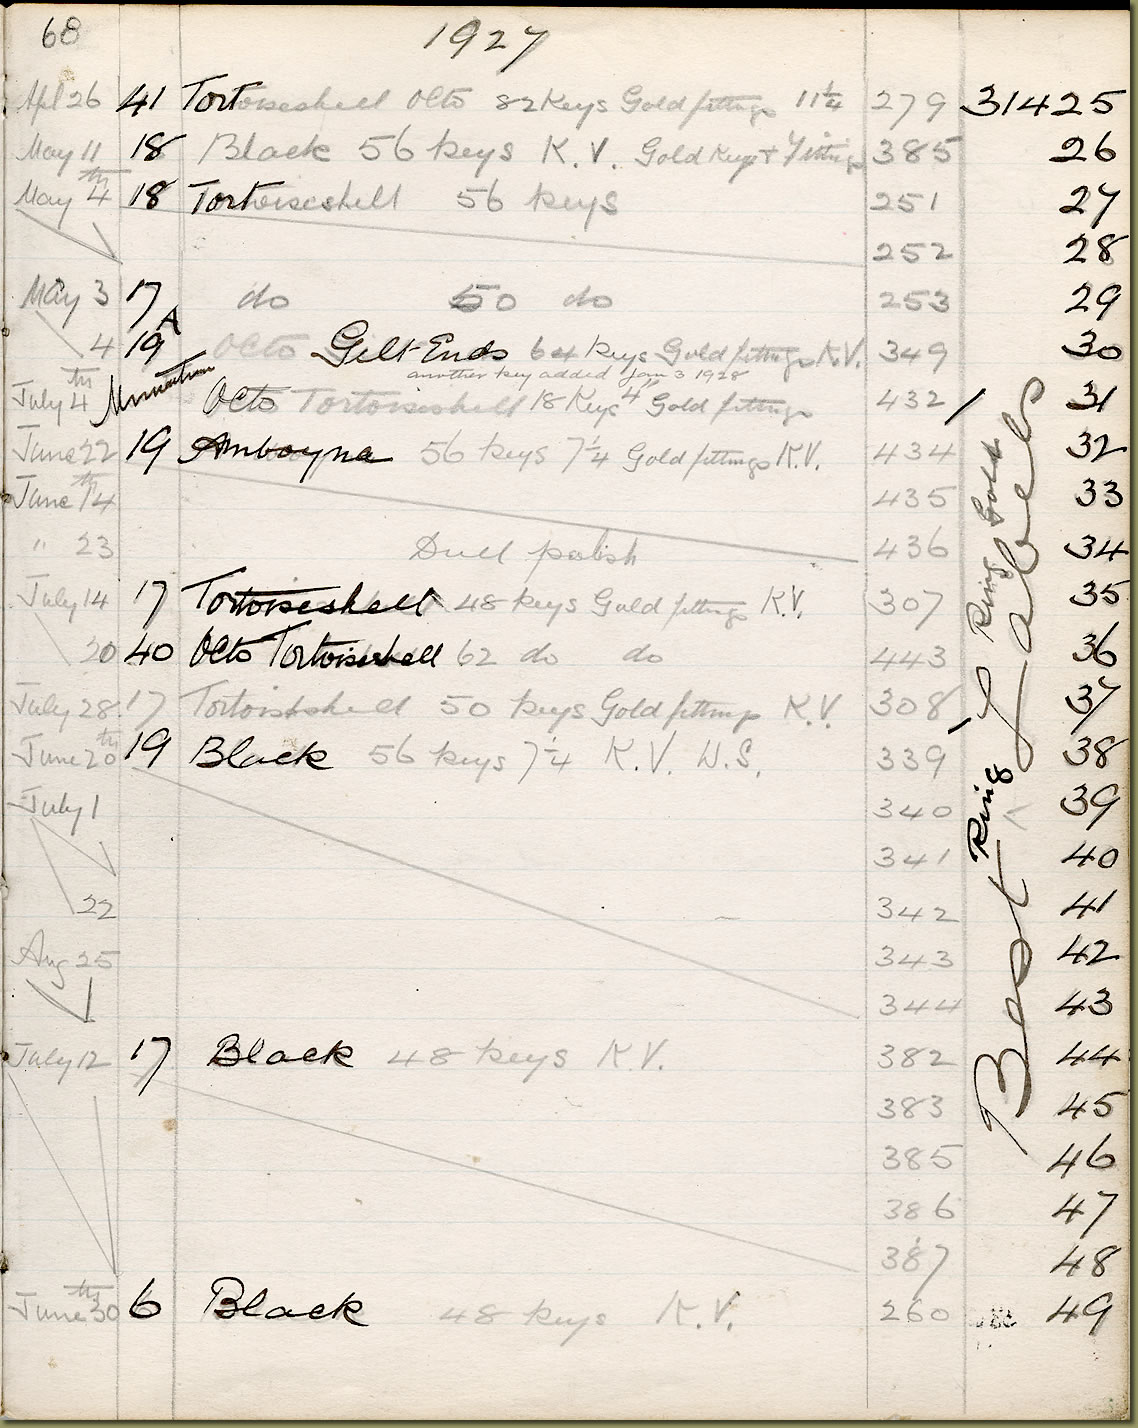 68 1927
Apl 26 41 Tortoiseshell Octo 82 Keys Gold fittings 11¼ 279 31425
May 11 18 Black 56 keys K.V. Gold Keys + Fittings 385 26
May 4th 18 Tortoiseshell 56 keys 251 27
252 28
May 3 17 do 50 do 253 29
4 19A Octo Gilt Ends 64 keys Gold fittings K.V. 349 30
another key added Jan 3 1928
July 4th Miniature Octo Tortoiseshell 18 Keys 4" Gold fittings 432 / 31
June 22 19 Amboyna 56 keys 7¼ Gold fittings K.V. 434 32
June 14th 435 33
" 23 Dull polish 436 34
July 14 17 Tortoiseshell 48 keys Gold fittings K.V. 307 35
20 40 Octo Tortoiseshell 62 do do 443 36
July 28 17 Tortoiseshell 50 keys Gold fittings K.V. 308 37
June 20th 19 Black 56 keys 7¼ K.V. W.S. 339 38
July 1 340 39
341 40
22 342 41
Aug 25 343 42
344 43
July 12 17 Black 48 keys K.V. 382 44
383 45
385 46
386 47
387 48
June 30th 6 Black 48 keys K.V. 260 49
Best Ring Labels
Ring Gold